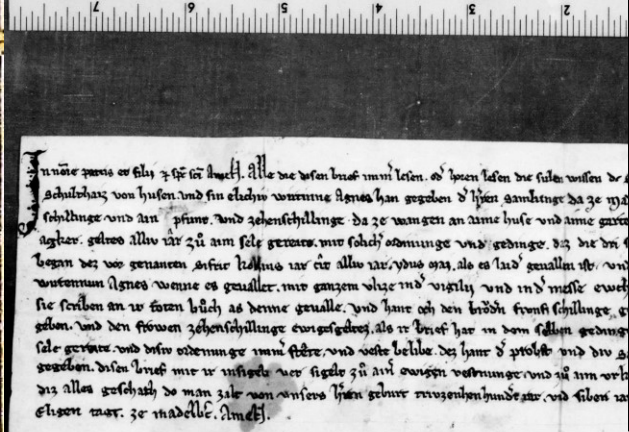 7 6 5 4 3 2
In nōie patris et filij ⁊ spc̄ sc̄i Ameħ. Alle die disen brief imm̄ lesen. od̓ hōren lesen die suleṅ wissen de
Schulthaiz von husen. und sin elichiv wirtinne Agnes han gegeben d̓ h̓ren samnunge da ze ma
schillinge und ain pfunt. und zehenschillinge da ze wangen an aime huse und aime garte
agker. geltes alliv iâr zů aim sele gerete. mit solich̓ ordnunge und gedinge. daz die dri s
began dez vor genanten sifrit iar cit alliv iar. ydus maij. als es laid̓ geuallen ist. und
wirtennun Agnes wenne es geuallet. mit ganzem vlize in d̓ vigilij und in d̓ messe eweh
sie scriben an ir toten bůch as denne geualle. und hant och den brůdn̄ funfschillinge g
geben. und den frowen zehenschillinge ewigesgeltez. als ir brief hat in dem selben geding
sele gerete. und disiv ordenunge imm̄ stete. und veste belibe. dez hant d̓ probst und div s
gegeben. disen brief mit ir insigele ver sigelt zů ainer ewigen vestnunge. und zů aim vrk
diz alles geschach do man zalt von unsers h̓ren geburt zwozenhenhundert iar. und siben iar
Eligen tagt. ze madelb̄. Ameħ.